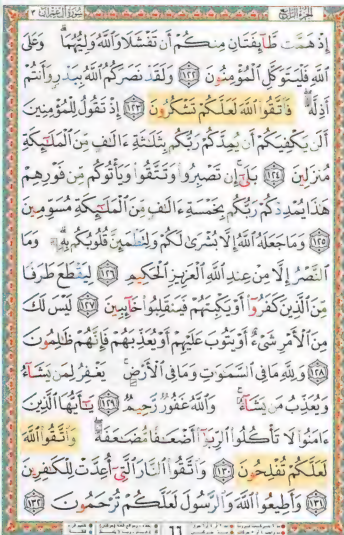 الجزء الرابع
سورة آل عمران ٣
إِذْ هَمَّت طَّآئِفَتَانِ مِنكُمْ أَن تَفْشَلَا وَٱللَّهُ وَلِيُّهُمَا ۗ وَعَلَى
ٱللَّهِ فَلْيَتَوَكَّلِ ٱلْمُؤْمِنُونَ ١٢٢ وَلَقَدْ نَصَرَكُمُ ٱللَّهُ بِبَدْرٍ وَأَنتُمْ
أَذِلَّةٌ ۖ فَٱتَّقُوا۟ ٱللَّهَ لَعَلَّكُمْ تَشْكُرُونَ ١٢٣ إِذْ تَقُولُ لِلْمُؤْمِنِينَ
أَلَن يَكْفِيَكُمْ أَن يُمِدَّكُمْ رَبُّكُم بِثَلَٰثَةِ ءَالَٰفٍ مِّنَ ٱلْمَلَٰٓئِكَةِ
مُنزَلِينَ ١٢٤ بَلَىٰٓ ۚ إِن تَصْبِرُوا۟ وَتَتَّقُوا۟ وَيَأْتُوكُم مِّن فَوْرِهِمْ
هَٰذَا يُمْدِدْكُمْ رَبُّكُم بِخَمْسَةِ ءَالَٰفٍ مِّنَ ٱلْمَلَٰٓئِكَةِ مُسَوِّمِينَ
١٢٥ وَمَا جَعَلَهُ ٱللَّهُ إِلَّا بُشْرَىٰ لَكُمْ وَلِتَطْمَئِنَّ قُلُوبُكُم بِهِۦ ۗ وَمَا
ٱلنَّصْرُ إِلَّا مِنْ عِندِ ٱللَّهِ ٱلْعَزِيزِ ٱلْحَكِيمِ ١٢٦ لِيَقْطَعَ طَرَفًا
مِّنَ ٱلَّذِينَ كَفَرُوٓا۟ أَوْ يَكْبِتَهُمْ فَيَنقَلِبُوا۟ خَآئِبِينَ ١٢٧ لَيْسَ لَكَ
مِنَ ٱلْأَمْرِ شَىْءٌ أَوْ يَتُوبَ عَلَيْهِمْ أَوْ يُعَذِّبَهُمْ فَإِنَّهُمْ ظَٰلِمُونَ
١٢٨ وَلِلَّهِ مَا فِى ٱلسَّمَٰوَٰتِ وَمَا فِى ٱلْأَرْضِ ۚ يَغْفِرُ لِمَن يَشَآءُ
وَيُعَذِّبُ مَن يَشَآءُ ۚ وَٱللَّهُ غَفُورٌ رَّحِيمٌ ١٢٩ يَٰٓأَيُّهَا ٱلَّذِينَ
ءَامَنُوا۟ لَا تَأْكُلُوا۟ ٱلرِّبَوٰٓا۟ أَضْعَٰفًا مُّضَٰعَفَةً ۖ وَٱتَّقُوا۟ ٱللَّهَ
لَعَلَّكُمْ تُفْلِحُونَ ١٣٠ وَٱتَّقُوا۟ ٱلنَّارَ ٱلَّتِىٓ أُعِدَّتْ لِلْكَٰفِرِينَ
١٣١ وَأَطِيعُوا۟ ٱللَّهَ وَٱلرَّسُولَ لَعَلَّكُمْ تُرْحَمُونَ ١٣٢
٦٦